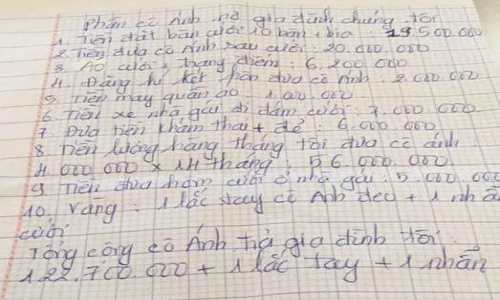 Phần cô Ánh nợ gia đình chúng tôi
1. Tiền đặt bàn cưới 10 bàn + bia : 19 500.000
2. Tiền đưa cô Ánh sau cưới : 20.000.000
3. Áo cưới, trang điểm : 6.200.000
4. Đăng kí kết hôn đưa cô Ánh : 2.000.000
5. Tiền may quần áo : 1.000.000
6 Tiền xe nhà gái đi đám cưới : 7.000.000
7. Đưa tiền khám thai + đẻ : 6.000.000
8 Tiền lương hàng tháng tôi đưa cô ánh
4.000.000 x 14 tháng : 56.000.000
9 Tiền đưa hôm cưới ở nhà gái : 5.000.000
10. Vàng : 1 lắc tay cô Ánh đeo + 1 nhẫ
cưới
Tổng cộng cô Ánh trả gia đình tôi :
122.700.000 + 1 lắc tay + 1 nhẫn